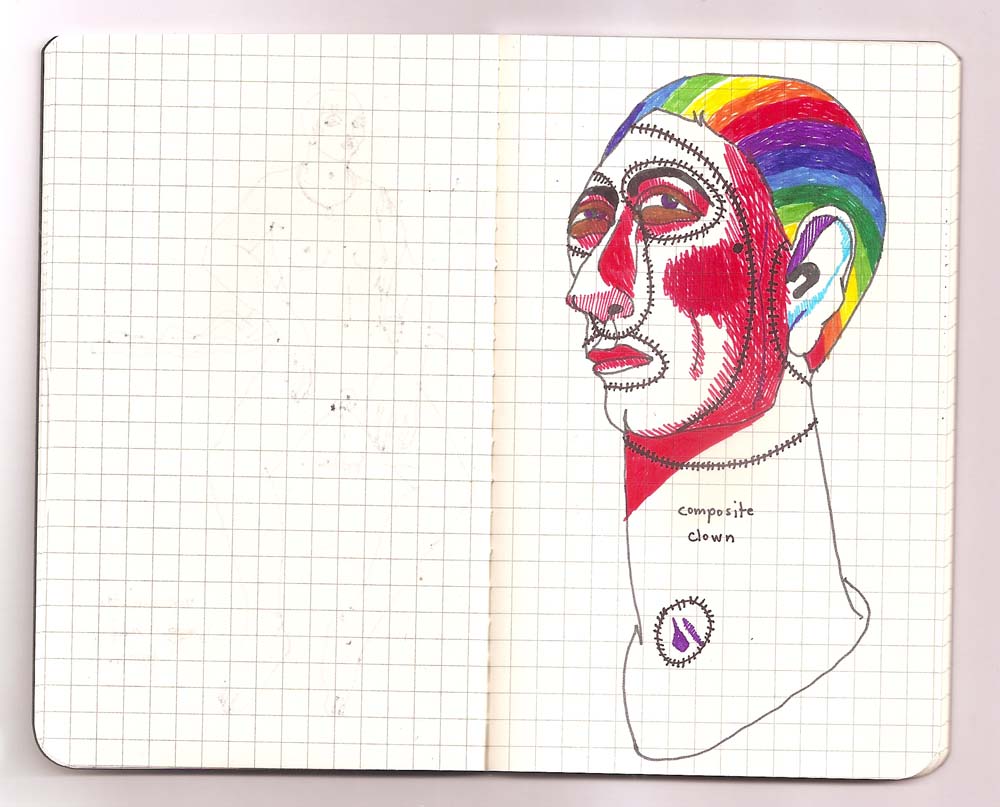 composite
clown